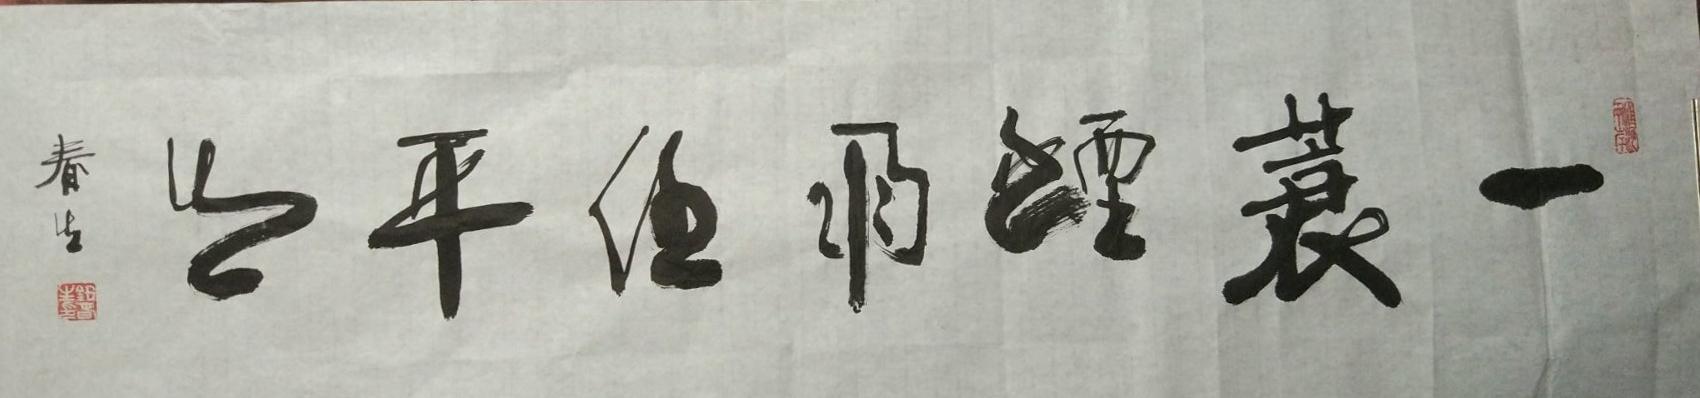 一蓑煙雨任平生
春生